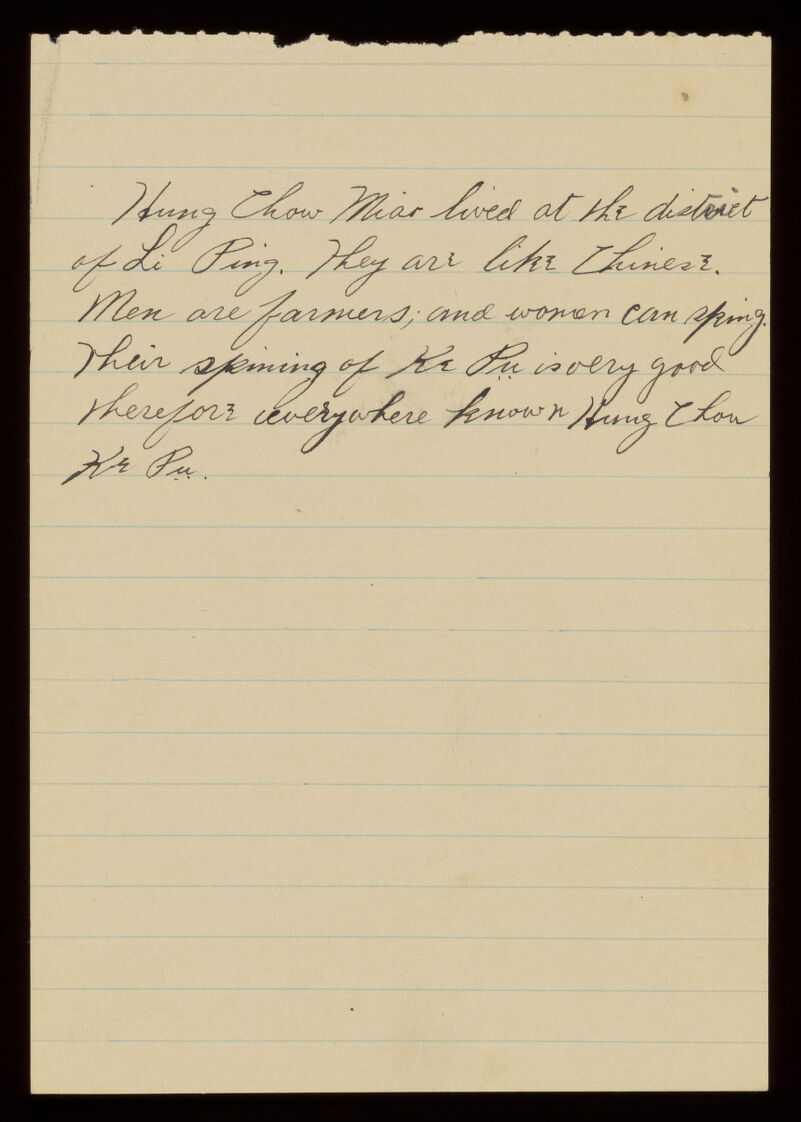 Hung Chow Miao lived at the district
of Li Ping. They are like Chinese.
Men are farmers; and women can sping.
Their spining of Ke Pu is very good
therefore everywhere known Hung Chou
Ke Pu.